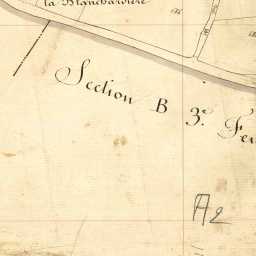 la Blanchardière
Section B 3.e Feu
A2